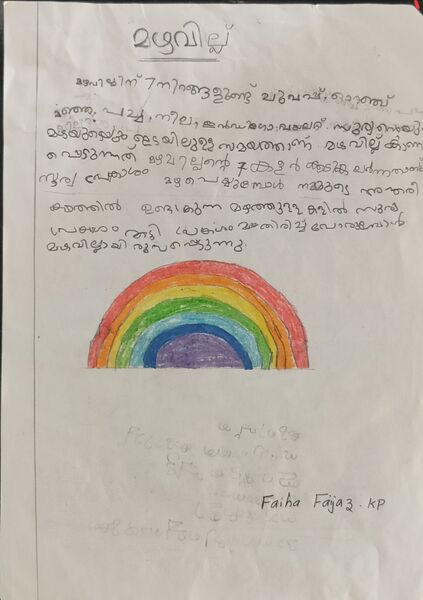 മഴവില്ല്
മഴവില്ലിന് 7 നിറങ്ങളുണ്ട് ചുവപ്പ്, ഓറഞ്ച്
മഞ്ഞ, പച്ച, നീല, ഇൻഡിഗോ, വയലറ്റ് സൂര്യനെയും
മഴയുടെയും ഇടയിലുള്ള സമയത്താണ് മഴവില്ല് കാണ
പ്പെടുന്നത് മഴവില്ലിന്റെ 7 കളർ
സൂര്യ പ്രകാശം മഴ പെയ്യുമ്പോൾ നമ്മുടെ അന്തരീ
ക്ഷത്തിൽ ഉണ്ടാകുന്ന മഴത്തുള്ളികളിൽ സൂര്യ
പ്രകാശം തട്ടി പ്രകാശം മടതിരിച്ച് പോരുമ്പോൾ
മഴവില്ലായി രൂപപ്പെടുന്നു.
Faiha Faijaz. KP